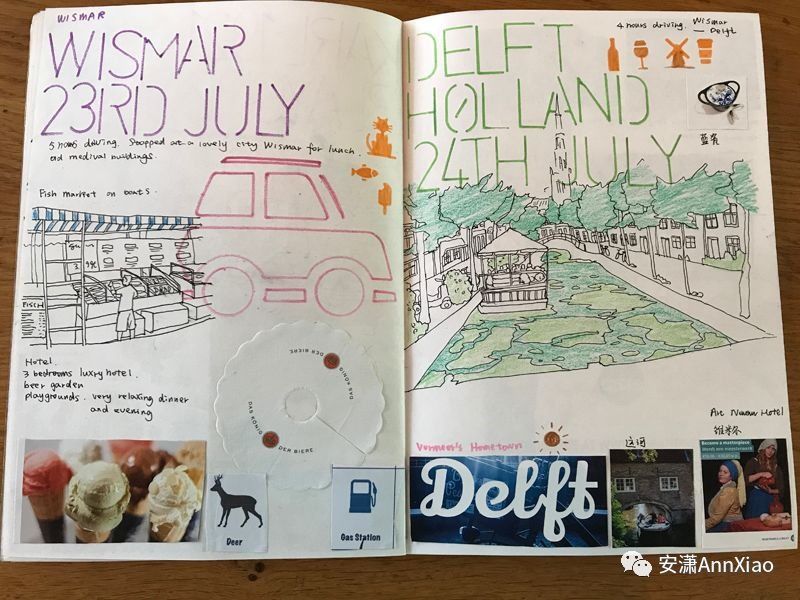 WISMAR
WISMAR
23RD JULY
5 hours driving. Stopped at a lovely city Wismar for lunch.
old medival buildings.
Fish market on boats.
FISCH
Hotel.
3 bedrooms luxry hotel.
beer garden
playgrounds. very relaxing dinner
and evening
DAS KÖNIG DER BIERE
DAS KÖNIG DER BIERE
Deer
Gas Station
4 hours driving. Wismar
— Delft
DELFT
HOLLAND
24TH JULY
蓝瓷
Art Nouveau Hotel
Vermeer's Hometown
运河
维米尔
Delft
Become a masterpiece
安潇AnnXiao